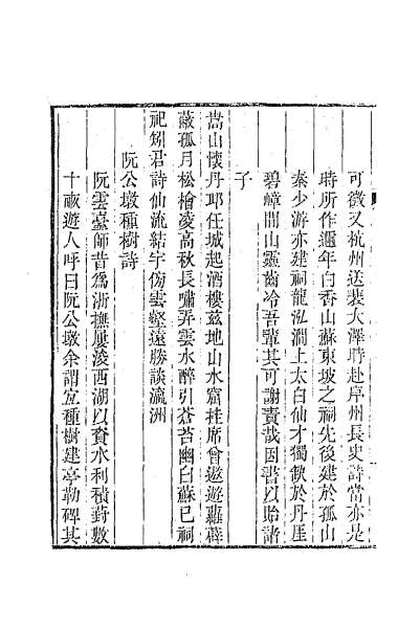 可徵又杭州送裴大澤時赴廬州長史詩當亦是
時所作邇年白香山蘇東坡之祠先後建於孤山
秦少游亦建祠龍泓澗上太白仙才獨缺於丹厓
碧嶂間山靈齒冷吾輩其可謝責哉因書以貽諸
子
嵩山懷丹邱任城起酒樓茲地山水窟挂席曾遨遊蘿薜
蔽孤月松檜凌高秋長嘯弄雲水醉引蒼苔幽白蘇已祠
祀矧君詩仙流結宇傍雲壑遠勝談瀛洲
阮公墩種樹詩
阮雲臺師昔爲浙撫屢浚西湖以資水利積葑數
十畝遊人呼曰阮公墩余謂宜種樹建亭勒碑其